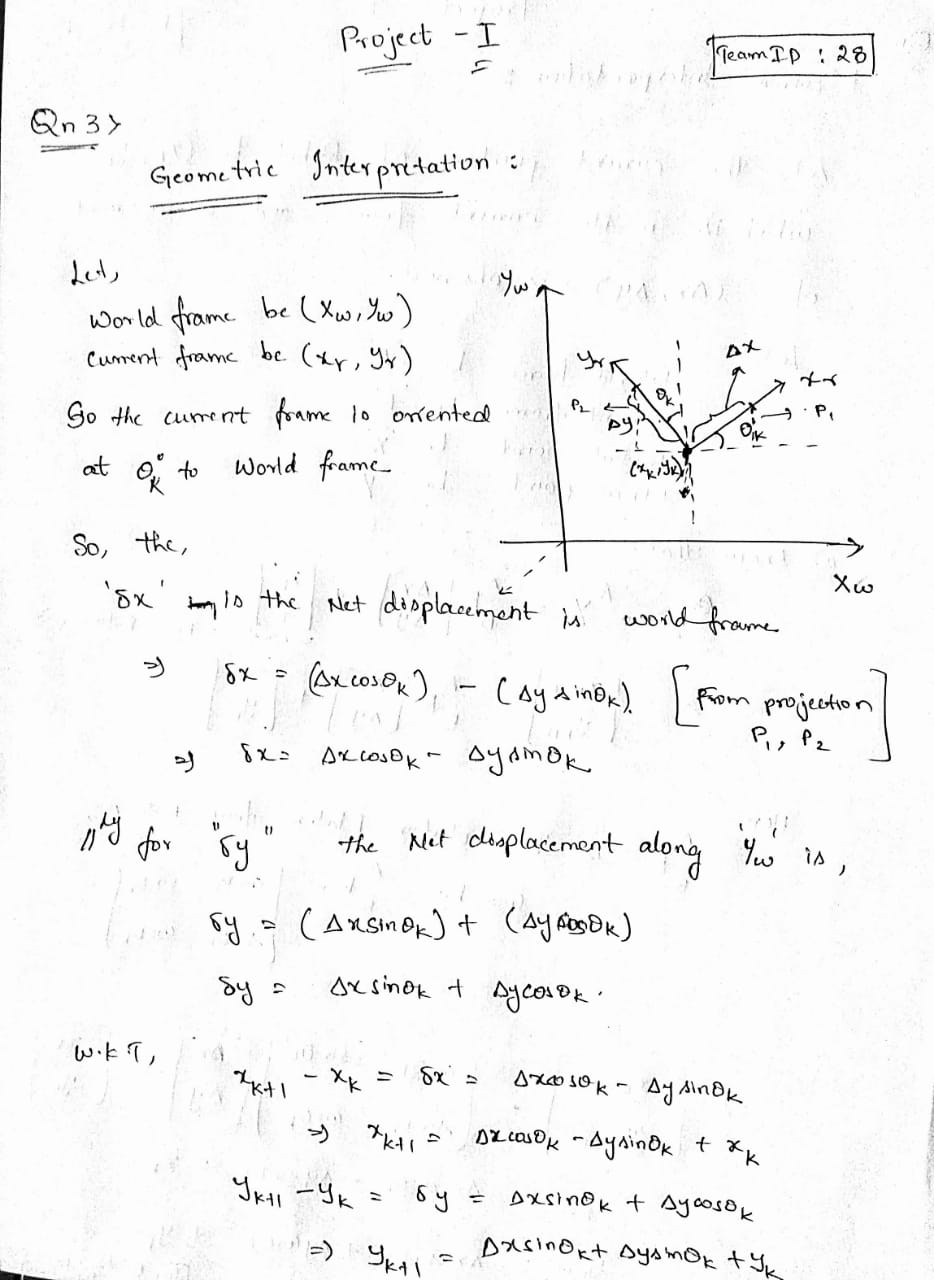 Project - I
Team ID : 28
Qn 3>
Geometric Interpretation :
Let,
World frame be (Xw, Yw)
Current frame be (xr, yr)
So the current frame is oriented
at θk° to World frame
Yw
Yr
Δx
xr
P2
θk
P1
Δy
θk
(xk, yk)
Xw
So, the,
'δx' is the Net displacement is world frame
⇒ δx = (Δx cosθk) - (Δy sinθk). [From projection P1, P2]
⇒ δx = Δx cosθk - Δy sinθk
||ly for "δy" the Net displacement along 'Yw' is,
δy = (Δx sinθk) + (Δy cosθk)
δy = Δx sinθk + Δy cosθk.
w.k T,
xk+1 - xk = δx = Δx cosθk - Δy sinθk
⇒ xk+1 = Δx cosθk - Δy sinθk + xk
yk+1 - yk = δy = Δx sinθk + Δy cosθk
⇒ yk+1 = Δx sinθk + Δy sinθk + yk